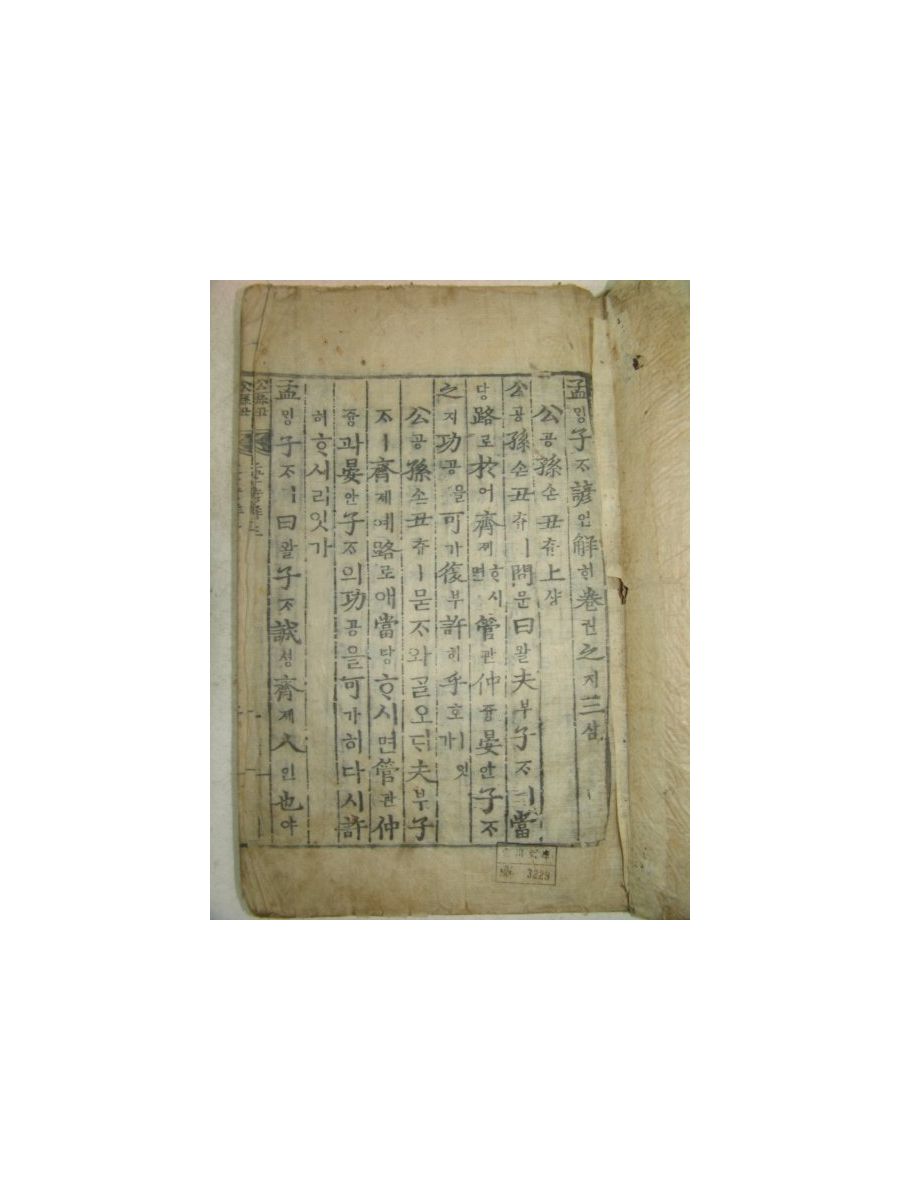 孟ᄆᆡᆼ子ᄌᆞ諺언解ᄒᆡ卷권之지三삼
公공孫손丑츄上샹
公공孫손丑츄ㅣ問문曰왈夫부子ᄌᆞㅣ當
당路로於어齊졔ᄒᆞ시면管관仲듕晏안子ᄌᆞ
之지功공을可가復부許허乎호ㅣ잇가
公공孫손丑츄ㅣ묻ᄌᆞ와ᄀᆞᆯ오ᄃᆡ夫부子
ᄌᆞㅣ齊졔예路로애當당ᄒᆞ시면管관仲
듕과晏안子ᄌᆞ의功공을可가히다시許
허ᄒᆞ시리잇가
孟ᄆᆡᆼ子ᄌᆞㅣ曰왈子ᄌᆞ誠셩齊졔人인也야
公孫丑
3229